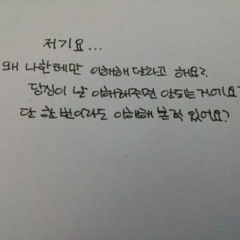 저기요...
왜 나한테만 이해해 달라고 해요?
당신이 날 이해해주면 안되는거에요?
단 한 번이라도 이해해 본적 있어요?